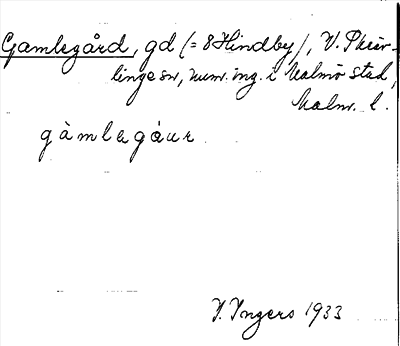 Gamlegård, gd (= 8 Hindby), V. Skär-
linge sn, num. ing. i Malmö stad,
Malm. l.
gàmlagáur
I. Ingers 1933